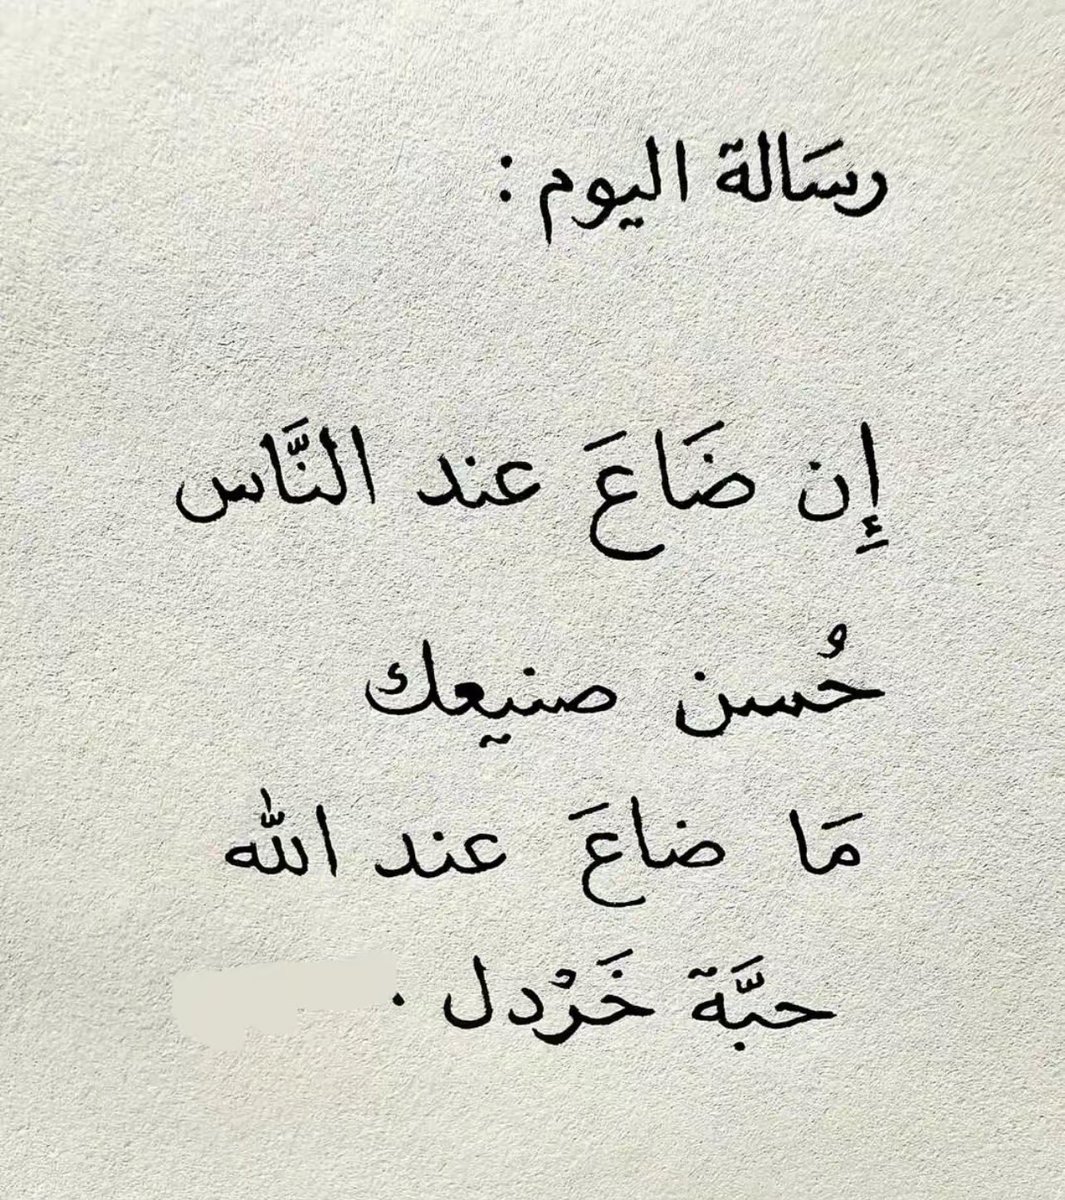 رسَالة اليوم :
إِن ضَاعَ عند النَّاس
حُسن صنيعك
مَا ضاعَ عند الله
حبَّة خَرْدل .